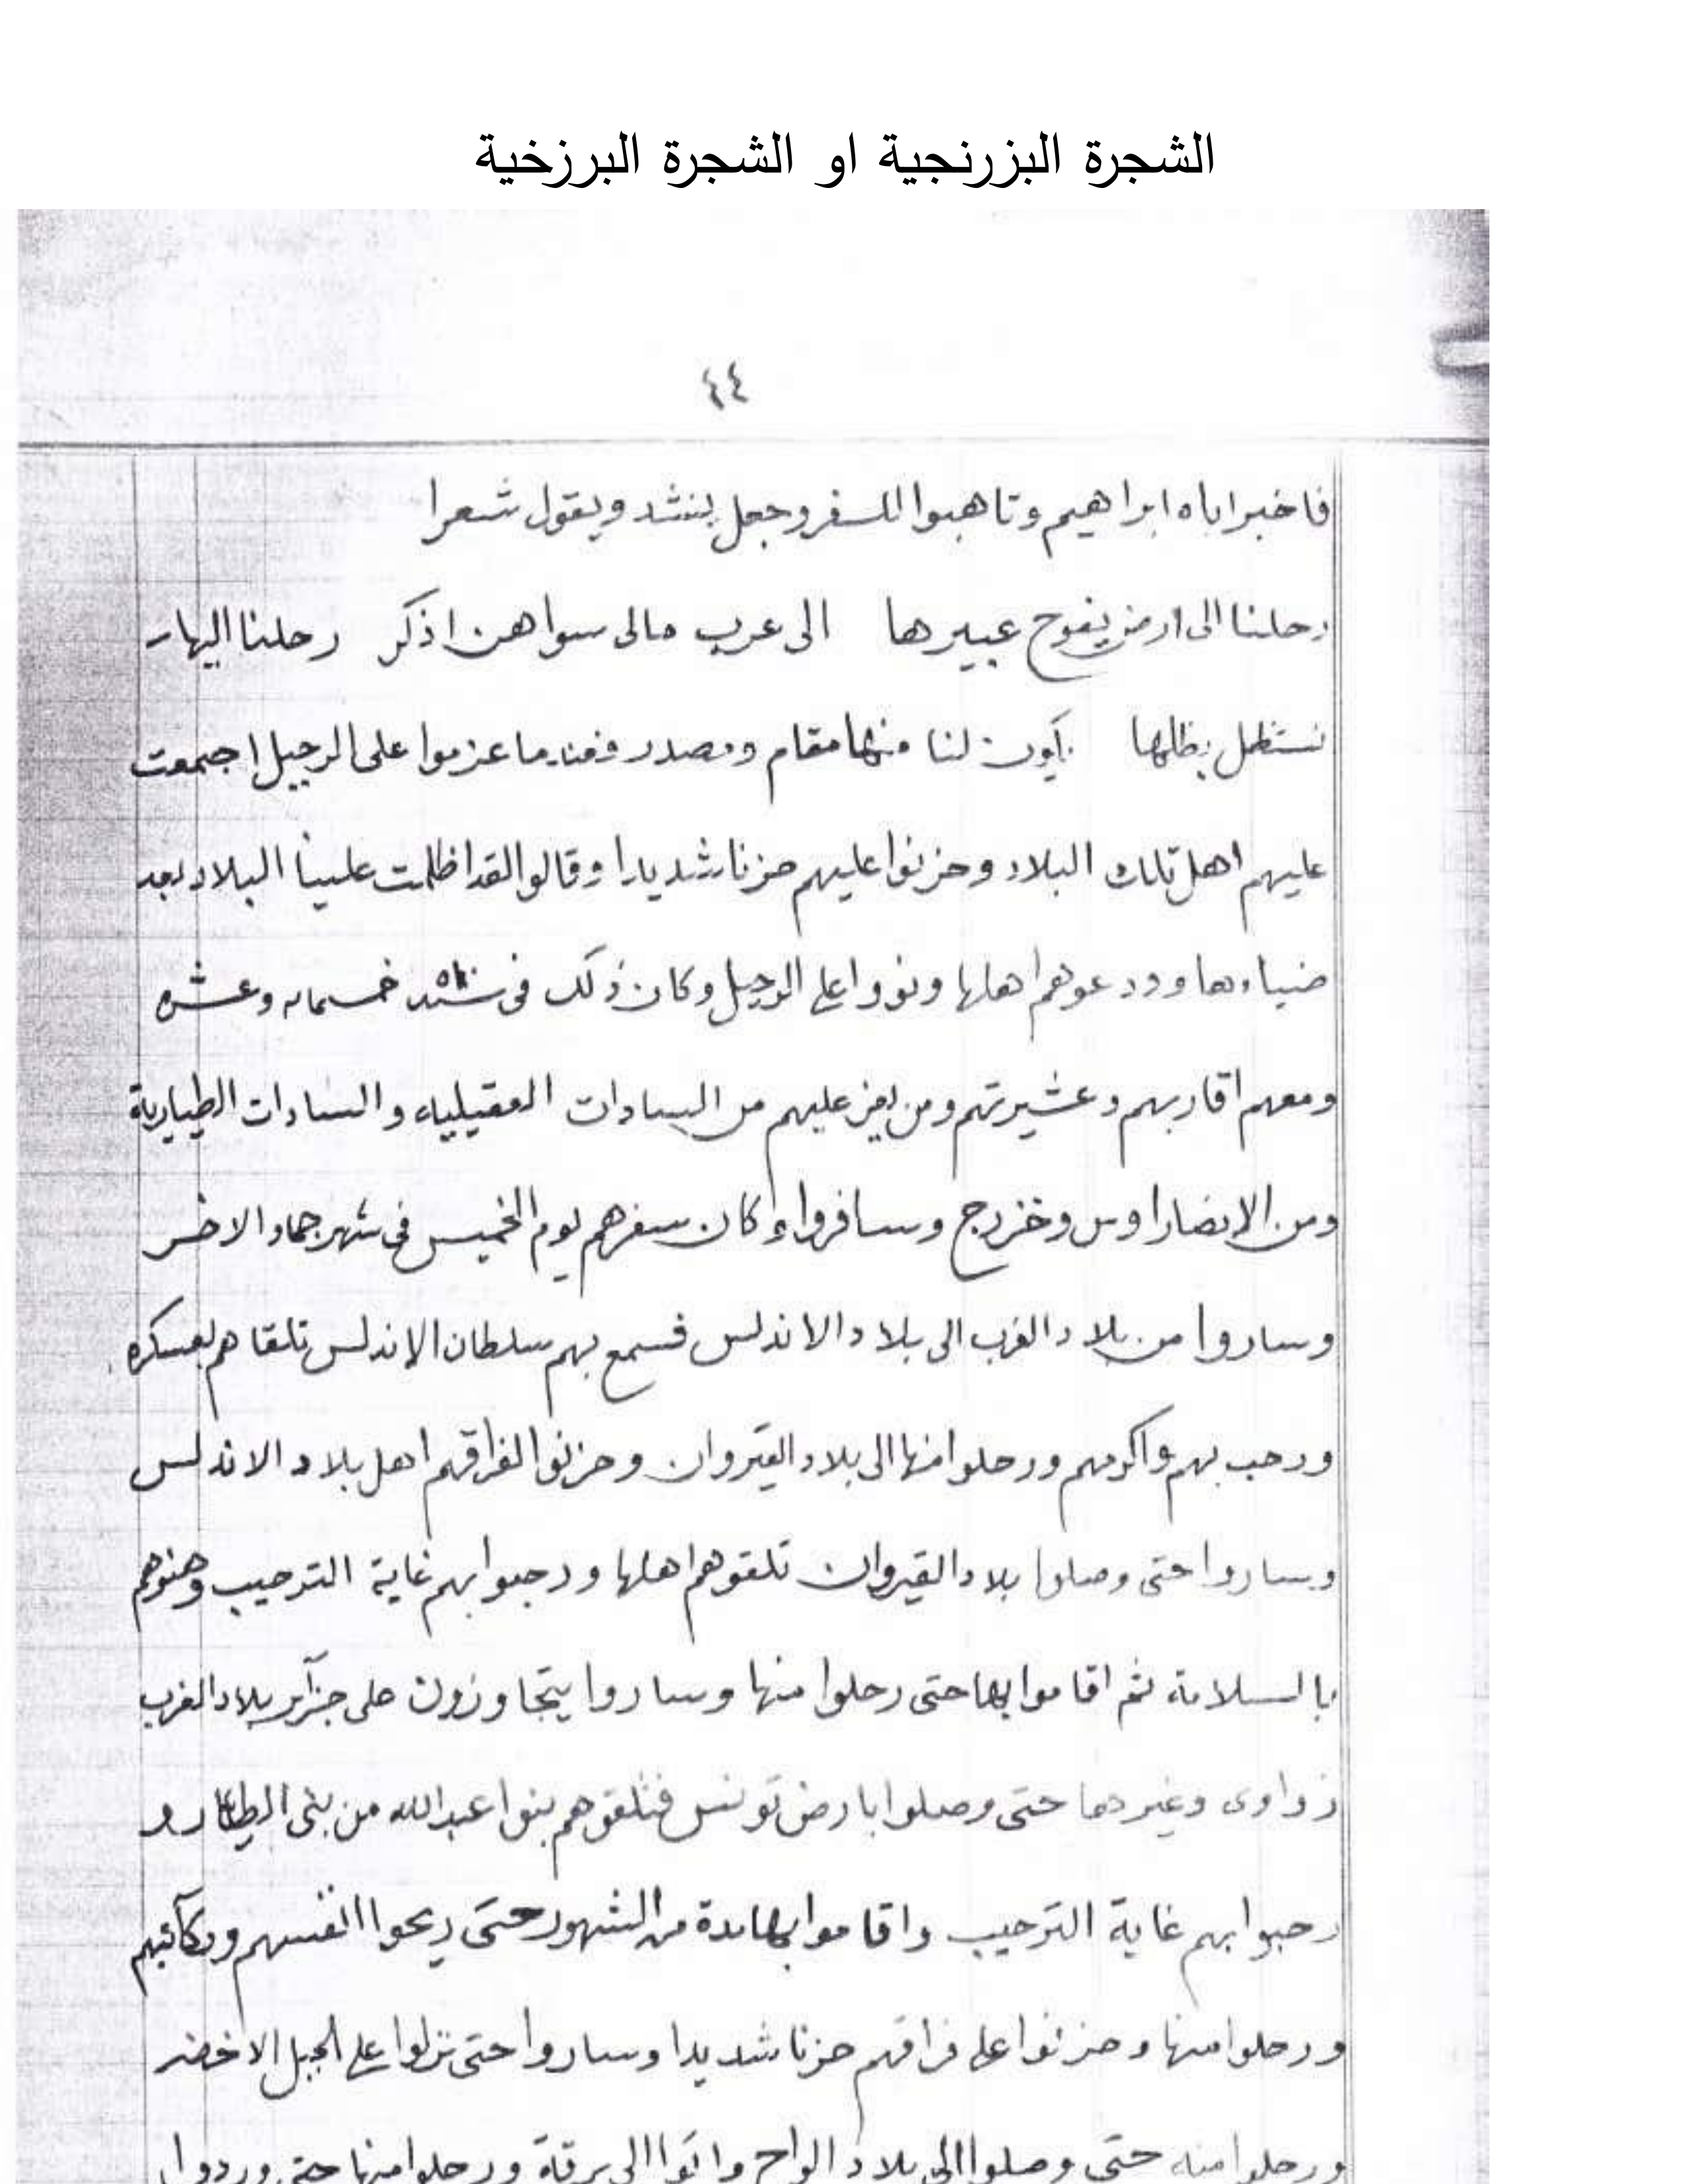 الشجرة البزرنجية او الشجرة البرزخية
٤٤
فاخبر اباه ابراهيم وتاهبوا للسفر وجعل ينشد ويقول شعرا
رحلنا الى ارض يفوح عبيرها الى عرب مالى سواهن اذكر رحلنا اليها
نستظل بظلها لنا منها مقام ومصدر عزموا على الرحيل اجتمعت
عليهم اهل تلك البلاد وحزنوا عليهم حزنا شديدا وقالوا لقد اظلمت علينا البلاد بعد
ضياءها وودعوهم اهلها ونووا على الرحيل وكان ذلك فى خمسمائه وعشره
ومعهم اقاربهم وعشيرتهم ومن يعز عليهم من السادات العقيلياء والسادات الطيارية
ومن الانصار اوس وخزرج وسافروا وكان سفرهم يوم الخميس فى شهر جماد الاخر
وساروا من بلاد الغرب الى بلاد الاندلس فسمع بهم سلطان الاندلس تلقاهم بعسكره
ورحب بهم واكرمهم ورحلوا منها الى بلاد القيروان وحزنوا لفراقهم اهل بلاد الاندلس
وساروا حتى وصلوا بلاد القيروان تلقوهم اهلها ورحبوا بهم غاية الترحيب وهنوهم
بالسلامة ثم اقاموا بها حتى رحلوا منها وساروا يتجاوزون على جزآير بلاد الغرب
زواوى وغيرهما حتى وصلوا بارض تونس فتلقوهم بنوا عبدالله من بنى
رحبوا بهم غاية الترحيب واقاموا بها مدة من الشهور حتى ريحوا انفسهم وركآئبهم
ورحلوا منها وحزنوا على فراقهم حزنا شديدا وساروا حتى نزلوا على الجبل الاخضر
ورحلوا منه حتى وصلوا الى بلاد الواح واتوا الى برقة ورحلوا منها حتى وردوا